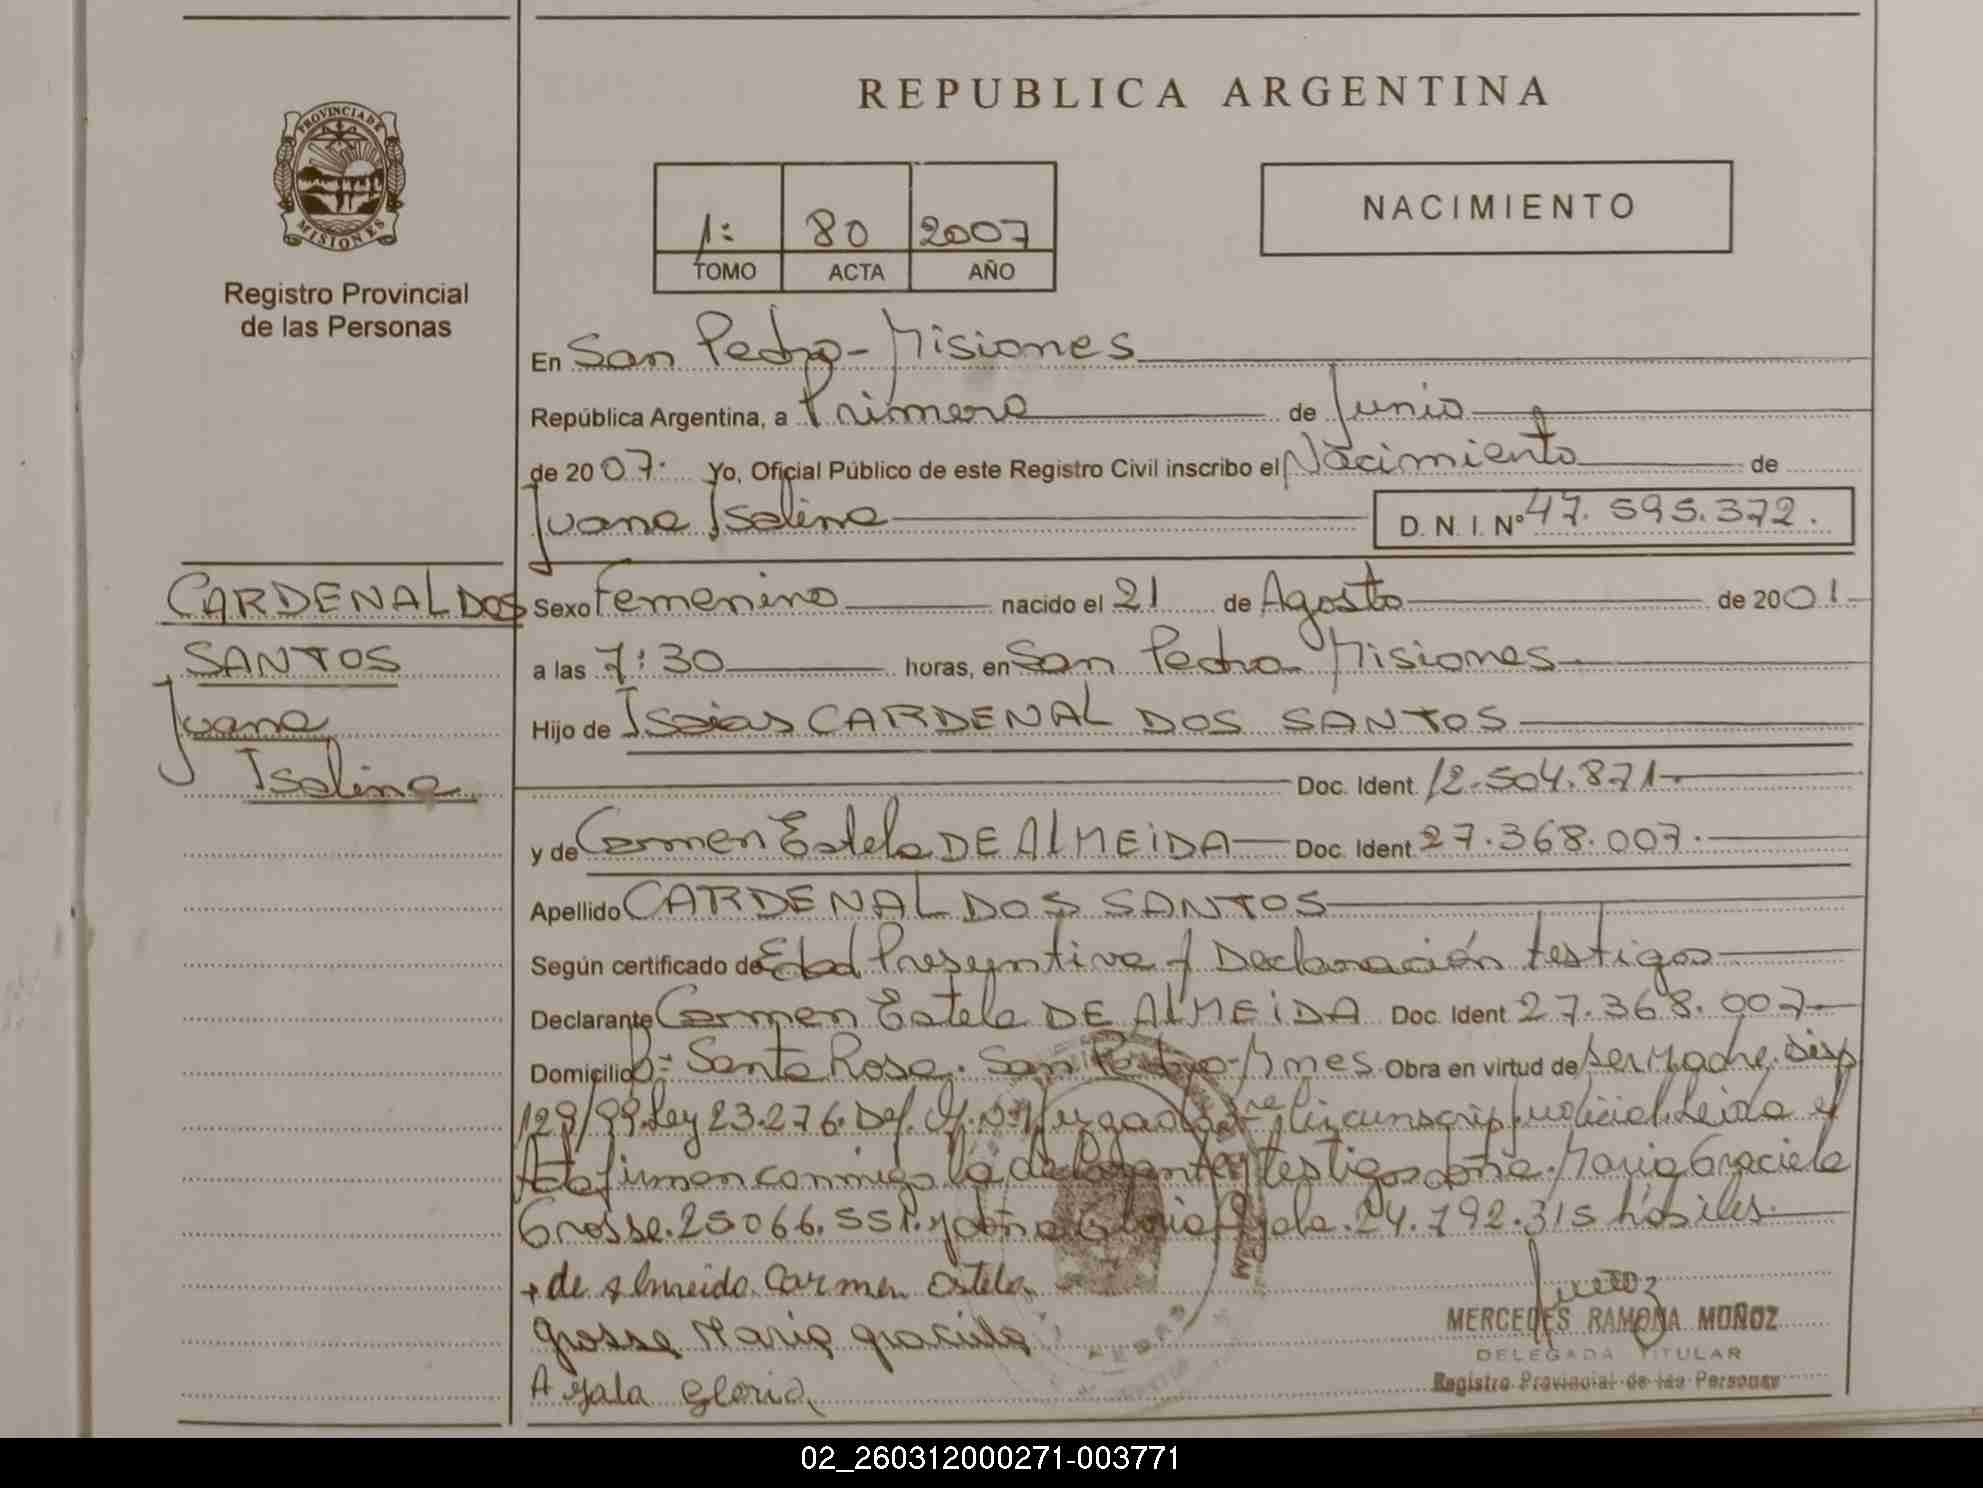 REPUBLICA ARGENTINA
PROVINCIA DE
MISIONES
Registro Provincial
de las Personas
1: 80 2007
TOMO ACTA AÑO
NACIMIENTO
En San Pedro - Misiones
República Argentina, a Primero de Junio
de 2007. Yo, Oficial Público de este Registro Civil inscribo el Nacimiento de
Juana Isolina D. N. I. Nº 47.595.372.
CARDENAL DOS
SANTOS
Juana
Isolina
Sexo Femenino nacido el 21 de Agosto de 2001
a las 7:30 horas, en San Pedro Misiones
Hijo de Isaias CARDENAL DOS SANTOS
Doc. Ident. 12.504.871
y de Carmen Estela DE ALMEIDA Doc. Ident. 27.368.007.
Apellido CARDENAL DOS SANTOS
Según certificado de Edad Presuntiva y Declaración testigos
Declarante Carmen Estela DE ALMEIDA Doc. Ident. 27.368.007
Domicilio B: Santa Rosa. San Pedro-Mnes Obra en virtud de ser Madre. Disp
129/99. Ley 23.276. Def. Of. Juzgado 1re Circunscrip Judicial. Leida el
Acta firman conmigo la declarante y testigos doña. Maria Graciela
Grosse. 25066.551. y doña Gloria Ayala. 24.792.315 hábiles.
+ de Almeida Carmen Estela
Grosse Maria graciela
Ayala Gloria
MERCEDES RAMONA MUÑOZ
DELEGADA TITULAR
Registro Provincial de las Personas
02_260312000271-003771